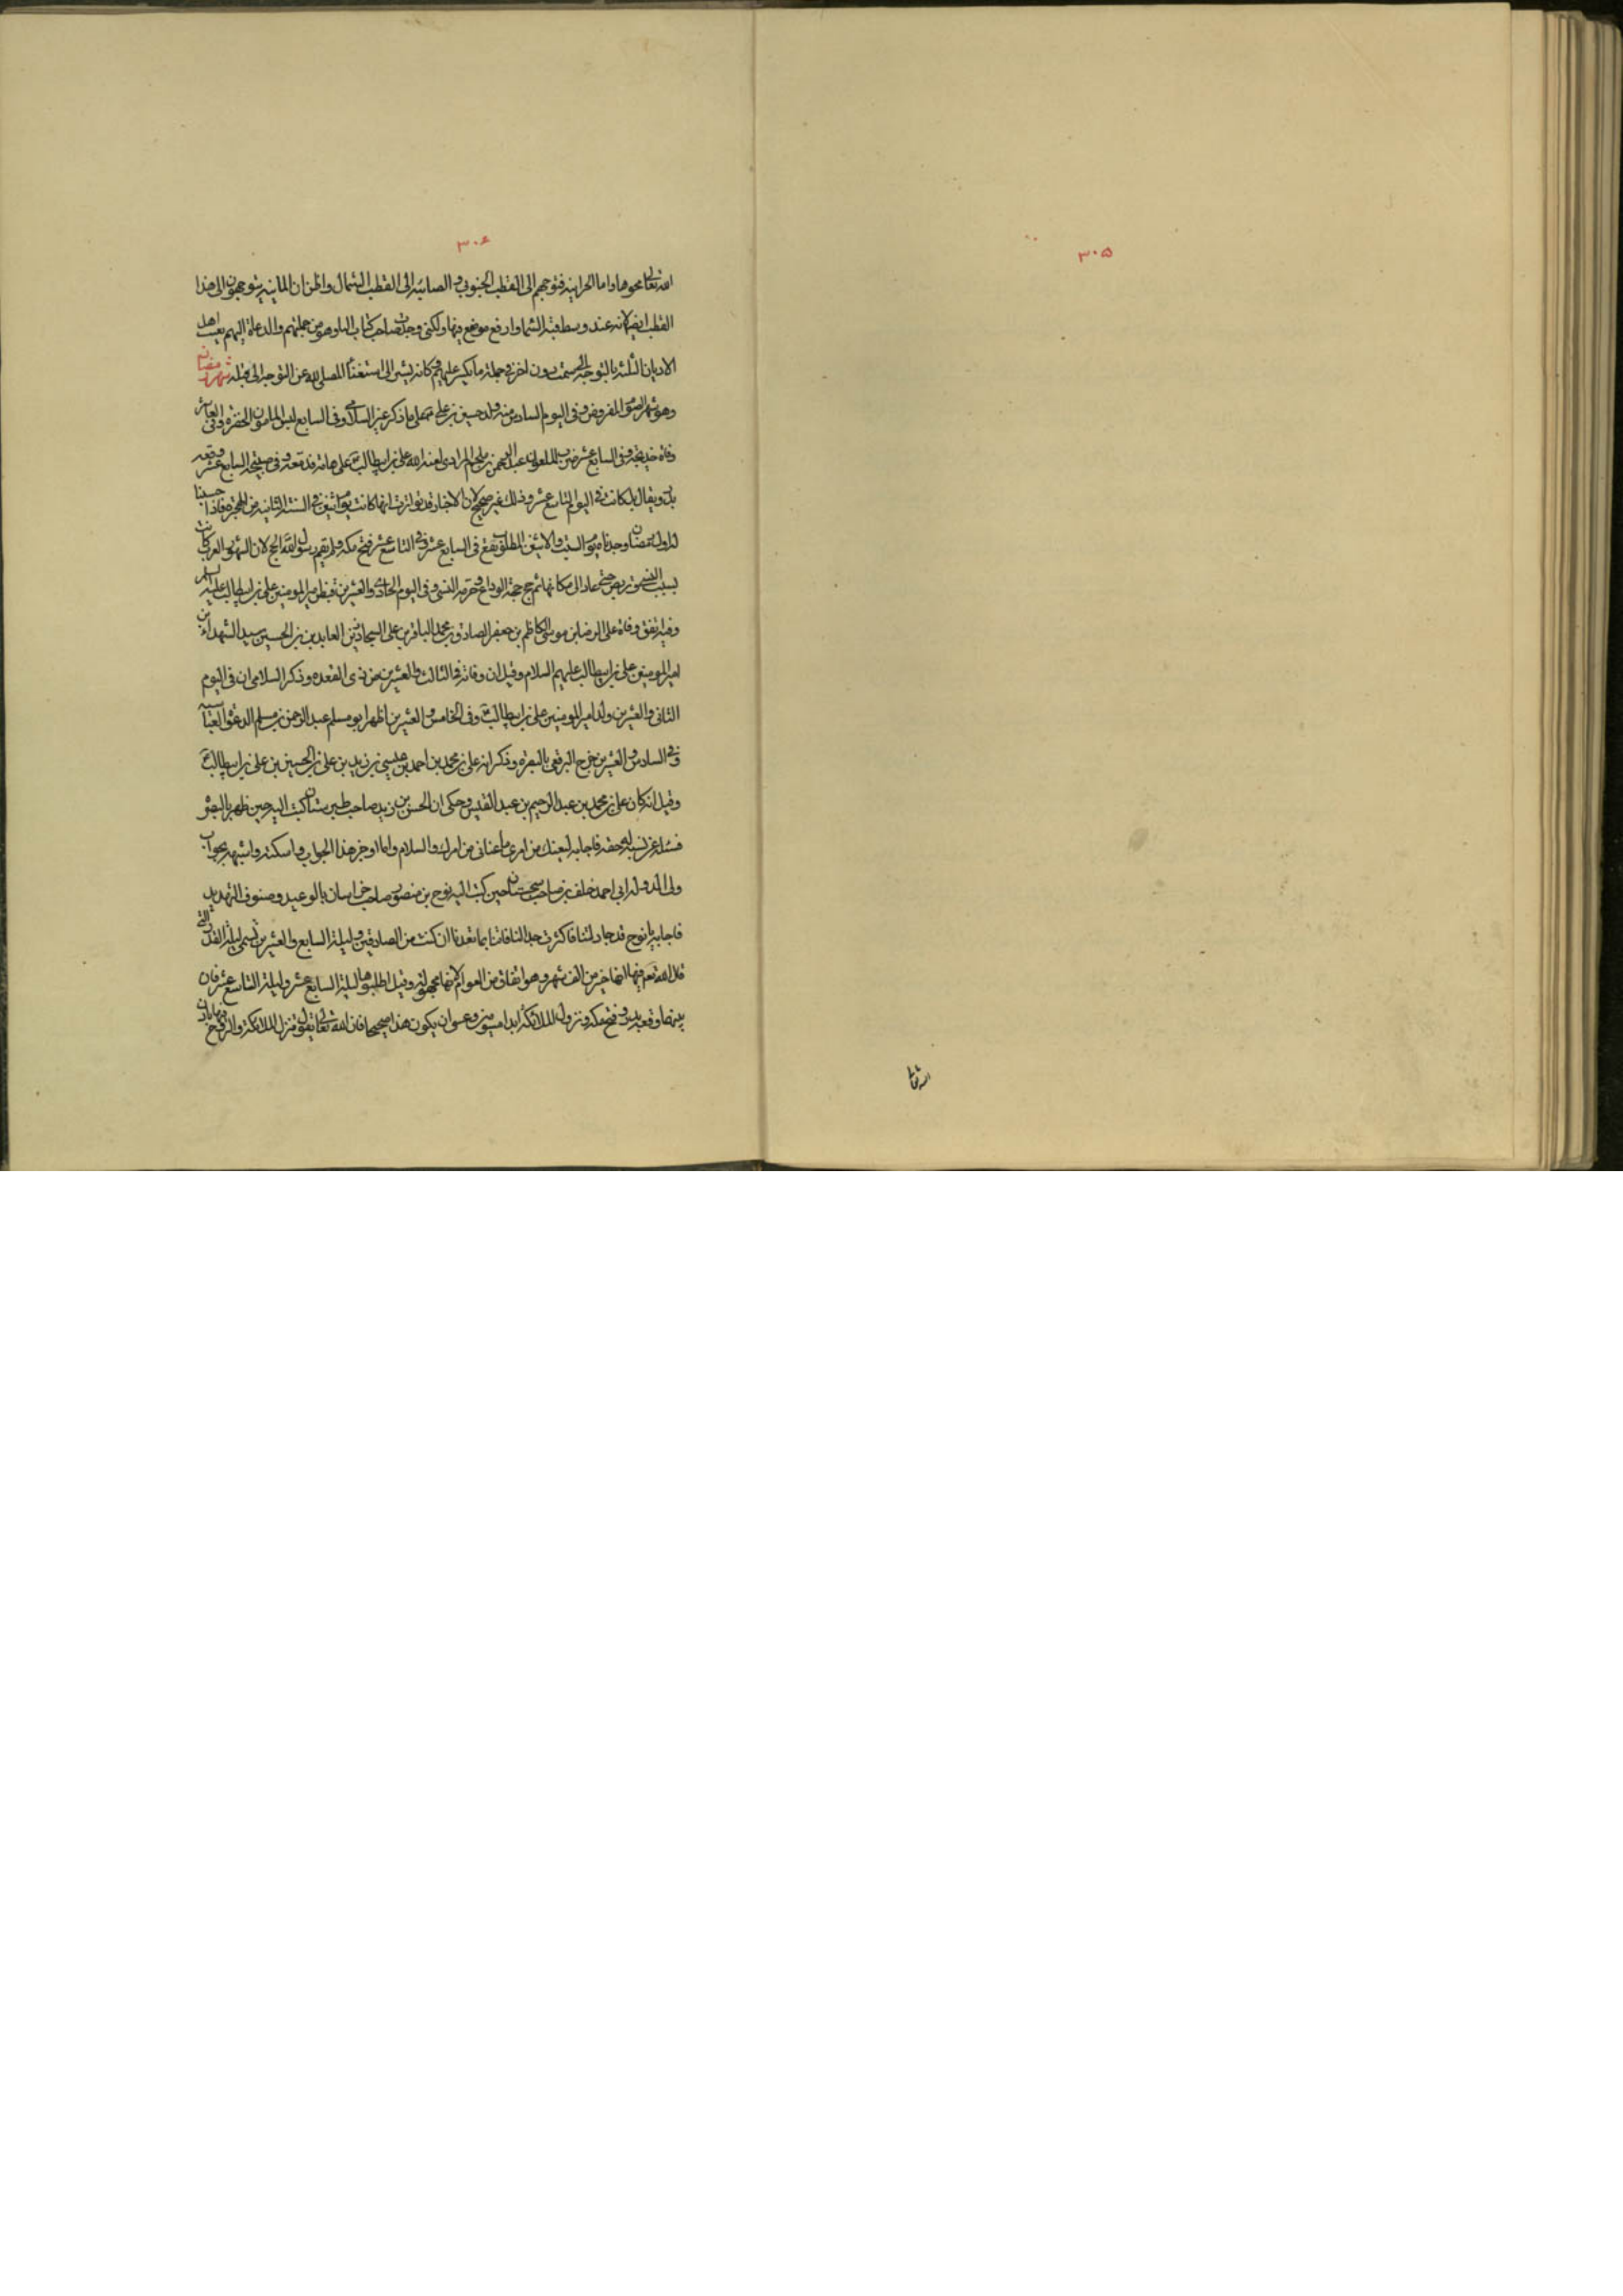 ٣٠٥
الله تعالى
٣٠٦
الله تعالى نحوها واما الحرانية فتوجههم الى القطب الجنوبى و الصابئه الى القطب الشمال واظن ان المانيه يتوجهون الى هذا
القطب ايضا لانه عند وسط قبة السماء وارفع موضع فيها ولكنى وجدت صاحب كتاب وهو من جملتهم والدعاة اليهم يعيب اهل
الاديان الثلثه بالتوجه الى سمت دون اخر فى جملة ما عليهم كانه يشير الى استغناء المصلى لله عن التوجه الى قبلة شهر رمضان
وهو شهر الصوم المفروض وفى اليوم السادس منه ولد حسين بن على ع على ما ذكر السلامى وفى السابع لبس المامون الخضره وفى العاشر
وفاة خديجة وفى السابع عشر ضرب الملعون عبد الرحمن بن ملجم المرادى لعنه الله على بن ابيطالب ع على هامته وفى صبيحة السابع عشر وقعه
بدر ويقال بل كانت فى اليوم التاسع عشر وذلك غير صحيح لان الاخبار قد تواترت انها كانت يوم اثنين فى السنة الثانيه من الهجرة فاذا حسبنا
لاول رمضان وجدناه يوم السبت والاثنين المطلوب يقع فى السابع عشر وفى التاسع عشر فتح مكه ولم يقم رسول الله الحج لان الشهور العرب كانت
بسبب النسى وتربص حتى عاد الى مكانها ثم حج حجة الوداع وحرم النسى وفى اليوم الحادى والعشرين قبض امير المومنين على بن ابيطالب عليه السلم
وفيه تتفق وفاة على الرضا بن موسى الكاظم بن جعفر الصادق بن محمد الباقر بن على السجاد زين العابدين بن الحسين سيد الشهداء بن
امير المومنين على بن ابيطالب عليهم السلام وقيل ان وفاته فى الثالث والعشرين من ذى القعده وذكر السلامى ان فى اليوم
الثانى والعشرين ولد امير المومنين على بن ابيطالب ع وفى الخامس والعشرين اظهر ابو مسلم عبد الرحمن بن مسلم الدعوة العباسيه
وفى السادس والعشرين خرج البرقعى بالبصره وذكر انه على بن محمد بن احمد بن عيسى بن زيد بن على بن الحسين بن على بن ابيطالب ع
وقيل انه كان على بن محمد بن عبد الرحيم بن عبد القيس وحكى ان الحسن بن زيد صاحب طبرستان كتب اليه حين ظهر بالبصره
فسئله عن نسبه فاجابه ليعنك من امرى ما عنانى من امرك والسلام واما اوجز هذا الجواب واسكته واشبهه بجواب
ولى الدوله ابى احمد خلف بن صاحب سجستان حين كتب اليه نوح بن منصور صاحب خراسان بالوعيد وصنوف التهديد
فاجابه يا نوح قد جادلتنا فاكثرت جدالنا فاتنا بما تعدنا ان كنت من الصادقين وليلة السابع والعشرين تسمى ليلة القدر التى
قال الله تعم فيها انها خير من الف شهر وهو اتفاق من العوام لانها مجهولة وقيل اطلبوها ليلة السابع عشر وليلة التاسع عشر فان
بينهما وقعة بدر وفتح مكه ونزول الملائكة امداد مسومين وعسى ان يكون هذا صحيحا فان الله تعالى يقول تنزل الملائكة والروح فيها باذن